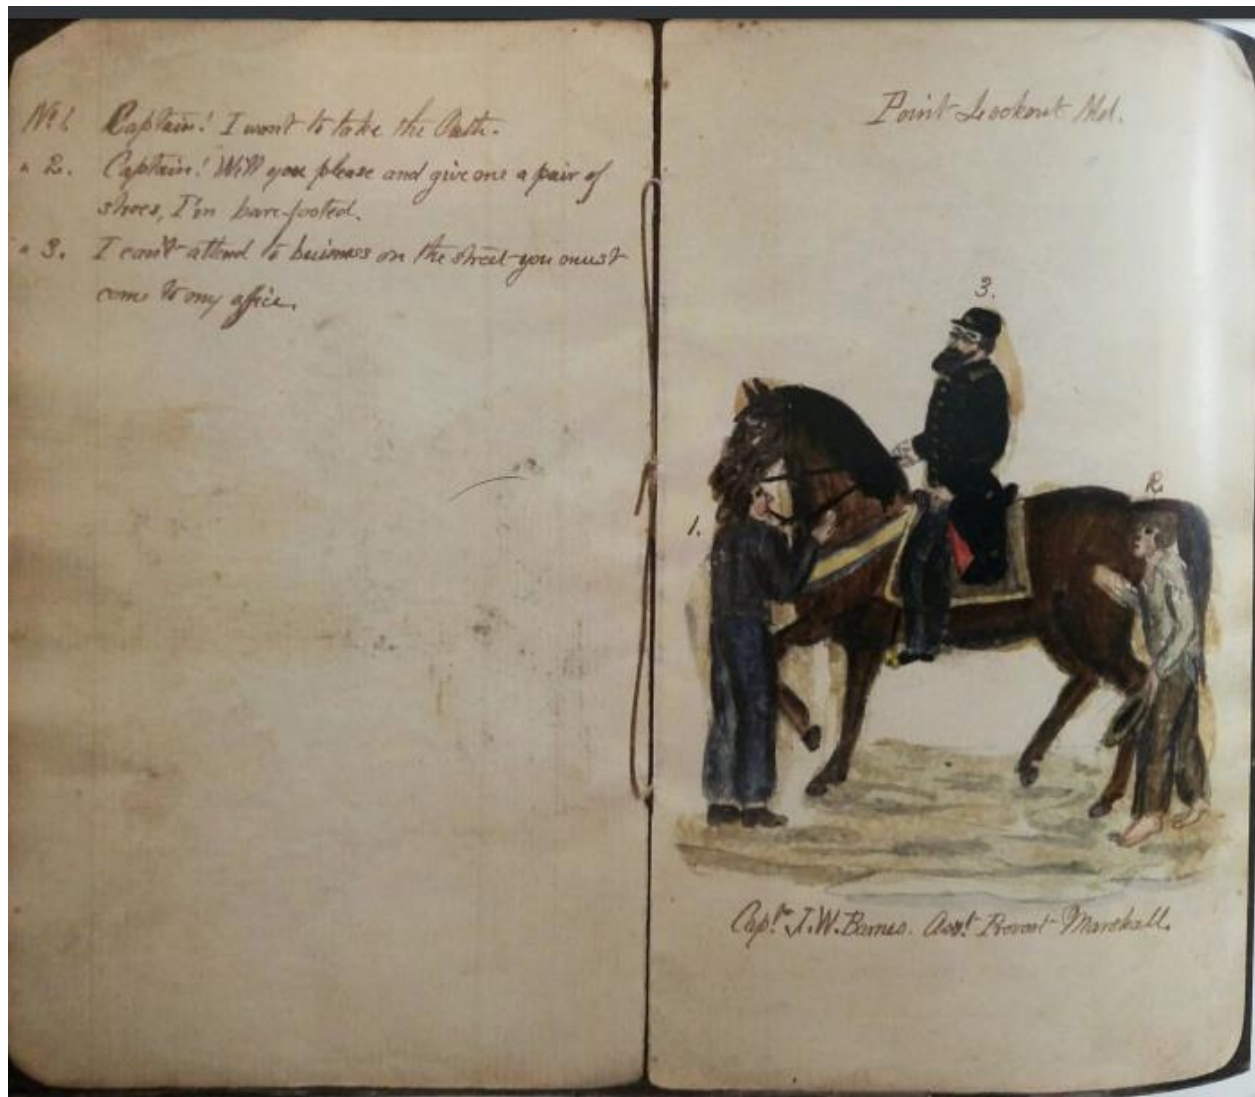 No 1. Captain! I want to take the Oath.
" 2. Captain! Will you please and give me a pair of
shoes, I'm bare-footed.
" 3. I can't attend to business on the street you must
come to my office.
Point Lookout Md.
3.
1.
2.
Capt. J.W. Barnes. Asst. Provost Marshall.